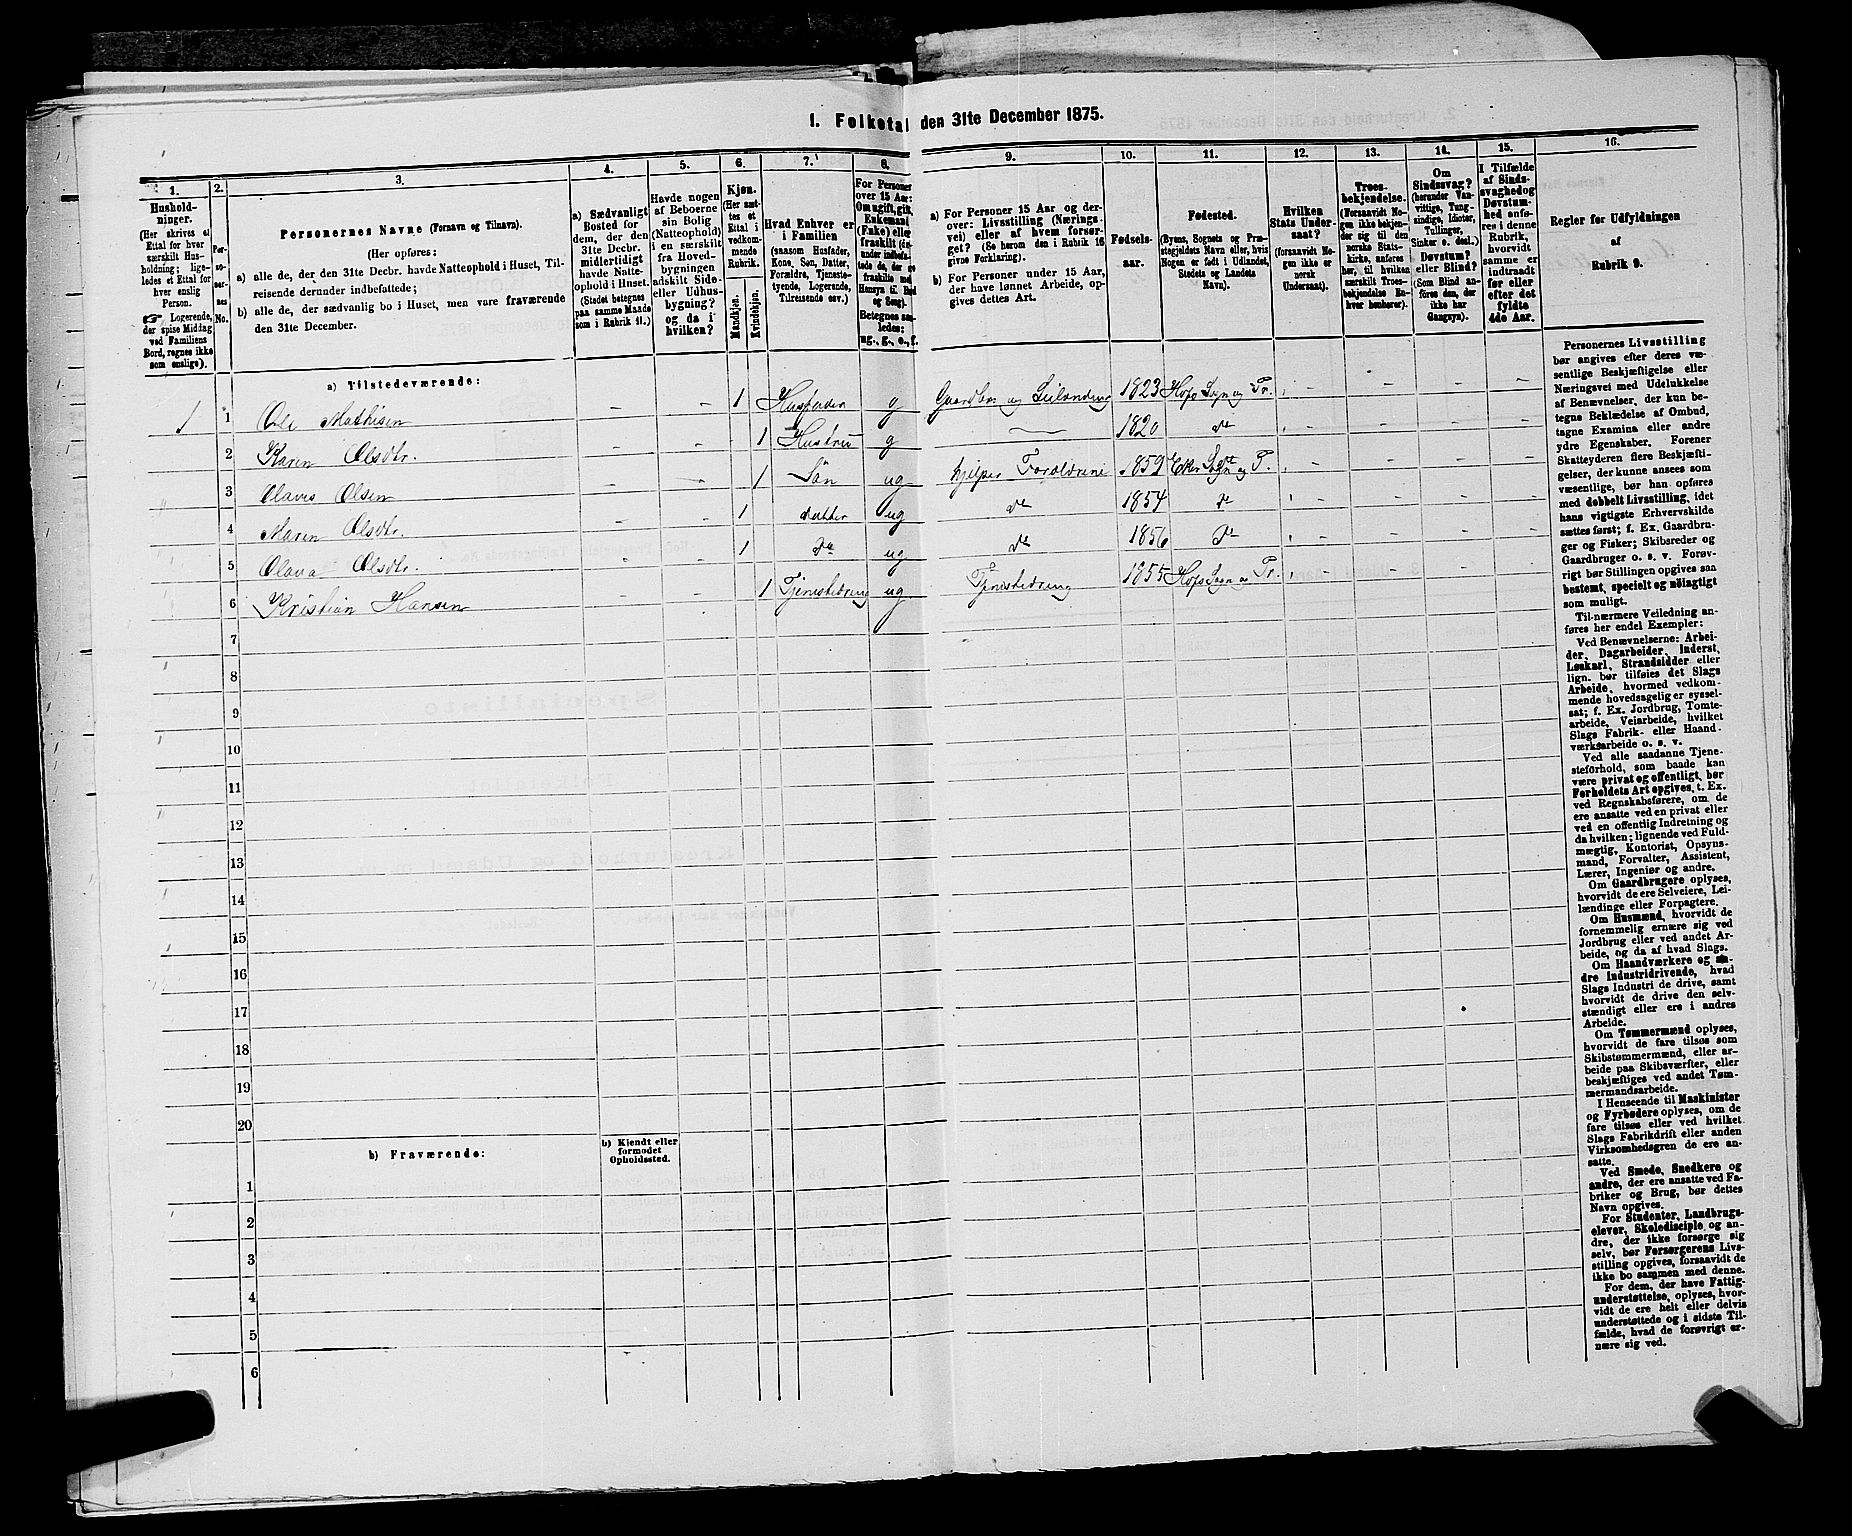 1. Folketal den 31te December 1875.
1. 2. 3. 4. 5. 6. 7. 8. 9. 10. 11. 12. 13. 14. 15. 16.
Hushold-
ninger.
(Her skrives et
Ettal for hver
særskilt Hus-
holdning; lige-
ledes et Ettal for
hver enslig
Person.
☞ Logerende,
der spise Middag
ved Familiens
Bord, regnes ikke
som enslige).
Per-
so-
ner-
nes
No.
Personernes Navne (Fornavn og Tilnavn).
(Her opføres:
a) alle de, der den 31te Decbr. havde Natteophold i Huset, Til-
reisende derunder indbefattede;
b) alle de, der sædvanlig bo i Huset, men vare fraværende
den 31te December.
a) Sædvanligt
Bosted for
dem, der den
31te Decbr.
midlertidigt
havde Natte-
ophold i Huset.
(Stedet betegnes
paa samme Maade
som i Rubrik 11.)
Havde nogen
af Beboerne
sin Bolig
(Natteophold)
i en særskilt
fra Hoved-
bygningen
adskilt Side-
eller Udhus-
bygning?
og da i
hvilken?
Kjøn.
(Her sæt-
tes et
Ettal i
vedkom-
mende
Rubrik.
Mandkjøn.
Kvindekjøn.
Hvad Enhver er
i Familien
(saasom Husfader,
Kone, Søn, Datter,
Forældre, Tjeneste-
tyende, Logerende,
Tilreisende osv.)
For Personer
over 15 Aar:
Om ugift, gift,
Enkemand
(Enke) eller
fraskilt (de-
under indbefat-
tede de, der ere
fraskilte med
Hensyn til Bord
og Seng).
Betegnes saa-
ledes:
ug., g., e., f.
a) For Personer 15 Aar og der-
over: Livsstilling (Nærings-
vei) eller af hvem forsør-
get? (Se herom den i Rubrik 16
givne Forklaring).
b) For Personer under 15 Aar,
der have lønnet Arbeide, op-
gives dettes Art.
Fødsels-
aar.
Fødested.
(Byens, Sognets og Præ-
stegjeldets Navn eller, hvis
Nogen er født i Udlandet,
Stedets og Landets
Navn).
Hvilken
Stats Under-
saat?
(forsaavidt No-
gen ikke er
norsk
Undersaat).
Troes-
bekjendelse.
(Forsaavidt No-
gen ikke bekjen-
der sig til den
norske Stats-
kirke, anføres
her, til hvilken
særskilt Troes-
bekjendelse En-
hver henhører).
Om
Sindssvag?
(herunder Van-
vittige, Tung-
sindige, Idioter,
Tullinger,
Sinker o. desl.)
Døvstum?
eller Blind?
(Som Blind an-
føres den, der
ikke har
Gangsyn).
I Tilfælde
af Sinds-
svaghed og
Døvstum-
hed anfø-
res i denne
Rubrik,
hvorvidt
samme er
indtraadt
før eller
efter det
fyldte
4de Aar.
Regler for Udfyldningen
af
Rubrik 9.
a) Tilstedeværende:
1 1 Ole Mathisen – – 1 Husfader g Gaardbr. og Leilænding 1823 Hofs Sogn og Pr.
2 Karen Olsdtr. – – 1 Hustru g 1820 do
3 Olavis Olsen – – 1 Søn ug hjelper Forældrene 1859 Eker Sogn og P.
4 Maren Olsdtr. – – 1 datter ug do 1854 do
5 Olava Olsdtr. – – 1 do ug do 1856 do
6 Kristian Hansen – – 1 Tjenestedreng ug Tjenestedreng 1855 Hofs Sogn og Pr.
7
8
9
10
11
12
13
14
15
16
17
18
19
20
b) Fraværende:
b) Kjendt eller
formodet
Opholdssted.
1
2
3
4
5
6
Personernes Livsstilling
bør angives efter deres væ-
sentlige Beskjæftigelse eller
Næringsvei med Udelukkelse
af Benævnelser, der kun be-
tegne Beklædelse af Ombud,
tagne Examina eller andre
ydre Egenskaber. Forener
Skatteyderen flere Beskjæfti-
gelser, der kunne ansees som
væsentlige, bør han opføres
med dobbelt Livsstilling, idet
hans vigtigste Erhvervskilde
sættes først; f. Ex. Gaardbru-
ger og Fisker; Skibsreder og
Gaardbruger o. s. v. Forøv-
rigt bør Stillingen opgives saa
bestemt, specielt og nøiagtigt
som muligt.
Til nærmere Veiledning an-
føres her endel Exempler:
Ved Benævnelserne: Arbei-
der, Dagarbeider, Inderst,
Løskarl, Strandsidder eller
lign. bør tilføies det Slags
Arbeide, hvormed vedkom-
mende hovedsagelig er syssel-
sat; f. Ex. Jordbrug, Tomte-
arbeide, Veiarbeide, hvilket
Slags Fabrik- eller Haand-
værksarbeide o. s. v.
Ved alle saadanne Tjene-
steforhold, som baade kan
være privat og offentligt, bør
Forholdets Art opgives, t. Ex.
ved Regnskabsførere, om de
ere ansatte ved en privat eller
ved en offentlig Indretning og
da hvilken; lignende ved Fuld-
mægtig, Kontorist, Opsyns-
mand, Forvalter, Assistent,
Lærer, Ingeniør og andre.
Om Gaardbrugere oplyses,
hvorvidt de ere Selveiere, Lei-
lændinge eller Forpagtere.
Om Husmænd, hvorvidt de
fornemmelig ernære sig ved
Jordbrug eller ved andet Ar-
beide, og da af hvad Slags.
Om Haandværkere og an-
dre Industridrivende, hvad
Slags Industri de drive, samt
hvorvidt de drive den selv-
stændigt eller ere i andres
Arbeide.
Om Tømmermænd oplyses,
hvorvidt de fare tilsøs som
Skibstømmermænd, eller ar-
beide paa Skibsværfter, eller
beskjæftiges ved andet Tøm-
mermandsarbeide.
I Henseende til Maskinister
og Fyrbødere oplyses, om de
fare tilsøs eller ved hvilket
Slags Fabrikdrift eller anden
Virksomhedsgren de ere an-
satte.
Ved Smede, Snedkere og
andre, der ere ansatte ved Fa-
briker og Brug, bør dettes
Navn opgives.
For Studenter, Landbrugs-
elever, Skoledisciple og an-
dre, der ikke forsørge sig
selv, bør Forsørgerens Livs-
stilling opgives, forsaavidt de
ikke bo sammen med denne.
For dem, der have Fattig-
understøttelse, oplyses, hvor-
vidt de ere helt eller delvis
understøttede og i sidste Til-
fælde, hvad de forøvrigt er-
nære sig ved.